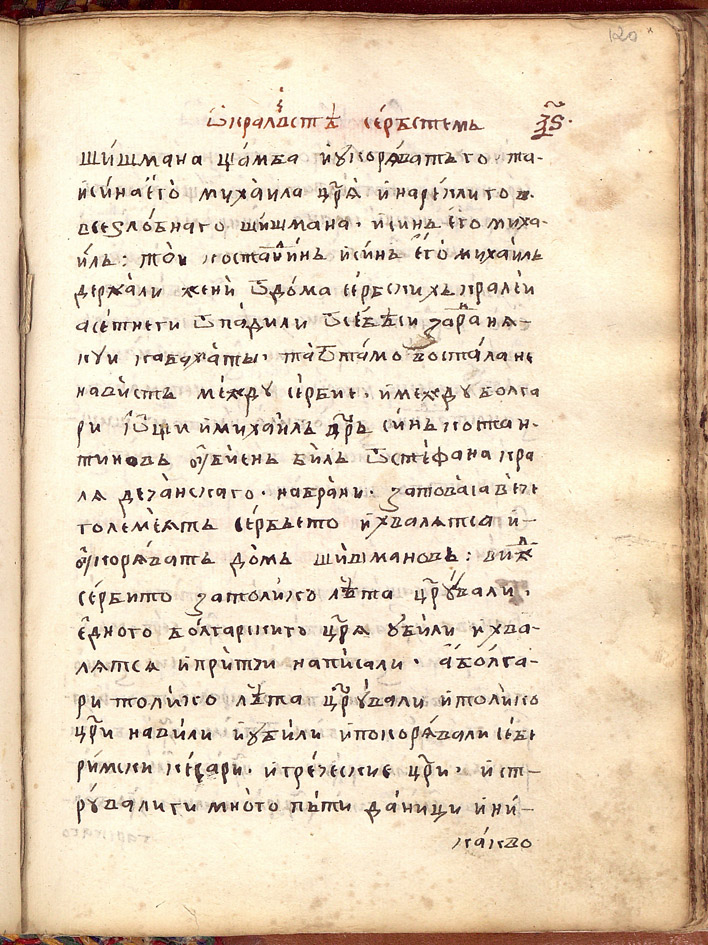 120
ѿ кралевстѣ сербстемъ ѯѕ·
шишмана цамба и укорѧватъ го· та-
и сина его михаила царѧ и нарекли го в.
всезлобнаго шишмана· и синъ его миха-
илъ: тои костанинъ и синъ его михаилъ
держали жени ѿ дома сербскихъ кралеи
а сетнеги ѿпадили ѿ себѣ си зара нѧ-
куи кабахаты· та ѿтамо востала не
навистъ между сербие· и между болга
ри ѿщи и михаилъ царъ синъ костан-
тиновъ оубиенъ билъ ѿ стефана кра
лѧ дечанскаго· на брани· затова ӏа вече
големеѧтъ сербьето и хвалѧтса и-
оукорѧватъ домъ шишмановъ: виж
сербито затолико лѣта царували·
едного болгарскиго царѧ убили и хва-
лѧтсѧ и притчи написали· а болга-
ри толико лѣта царували и толико
цари навили и убили и покорѧвали себе
римски кесари· и греческие цари· и ст-
рували ги много пъти даници и ни-
какво